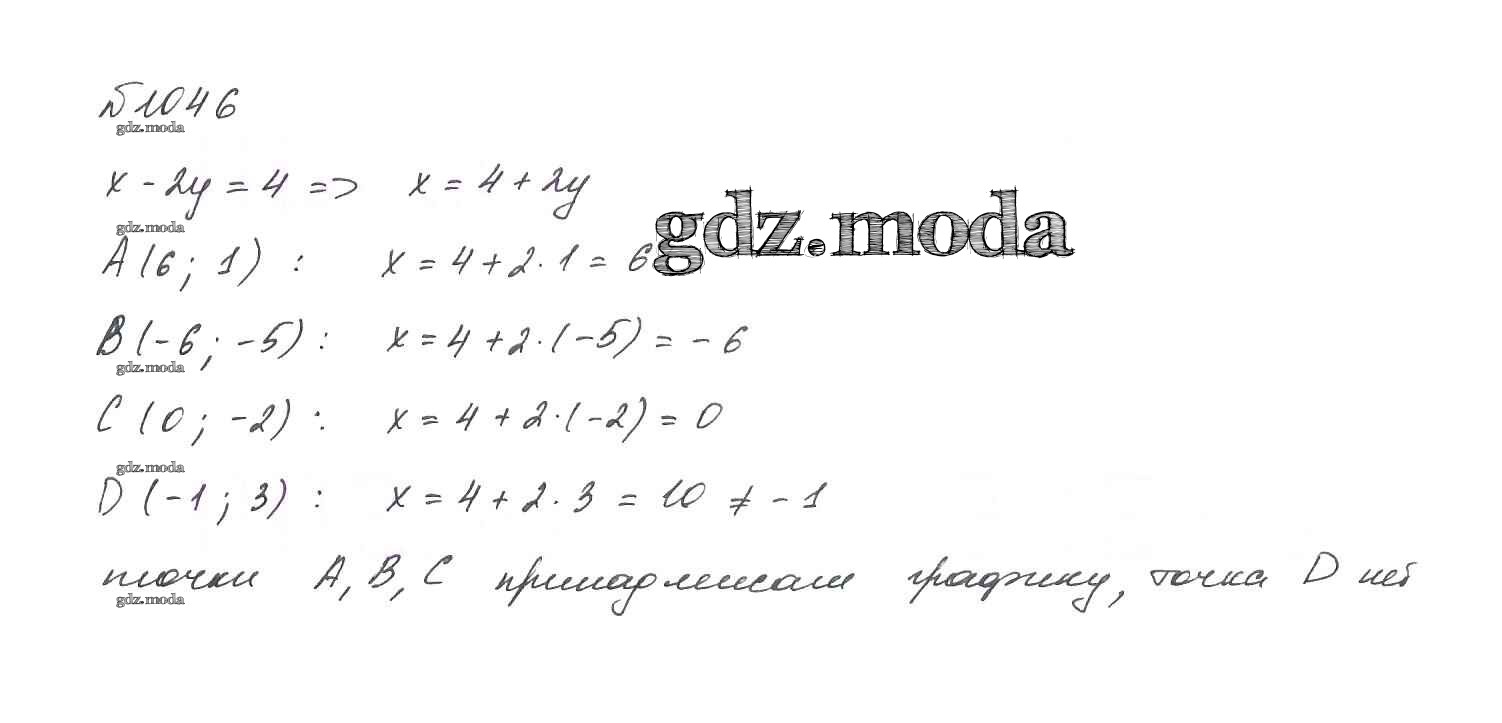 №1046
gdz.moda
x - 2y = 4 => x = 4 + 2y
gdz.moda
gdz.moda
A (6; 1) : x = 4 + 2 · 1 = 6
B (-6; -5) : x = 4 + 2 · (-5) = -6
gdz.moda
C (0; -2) : x = 4 + 2 · (-2) = 0
gdz.moda
D (-1; 3) : x = 4 + 2 · 3 = 10 ≠ -1
точки A, B, C принадлежат графику, точка D нет
gdz.moda